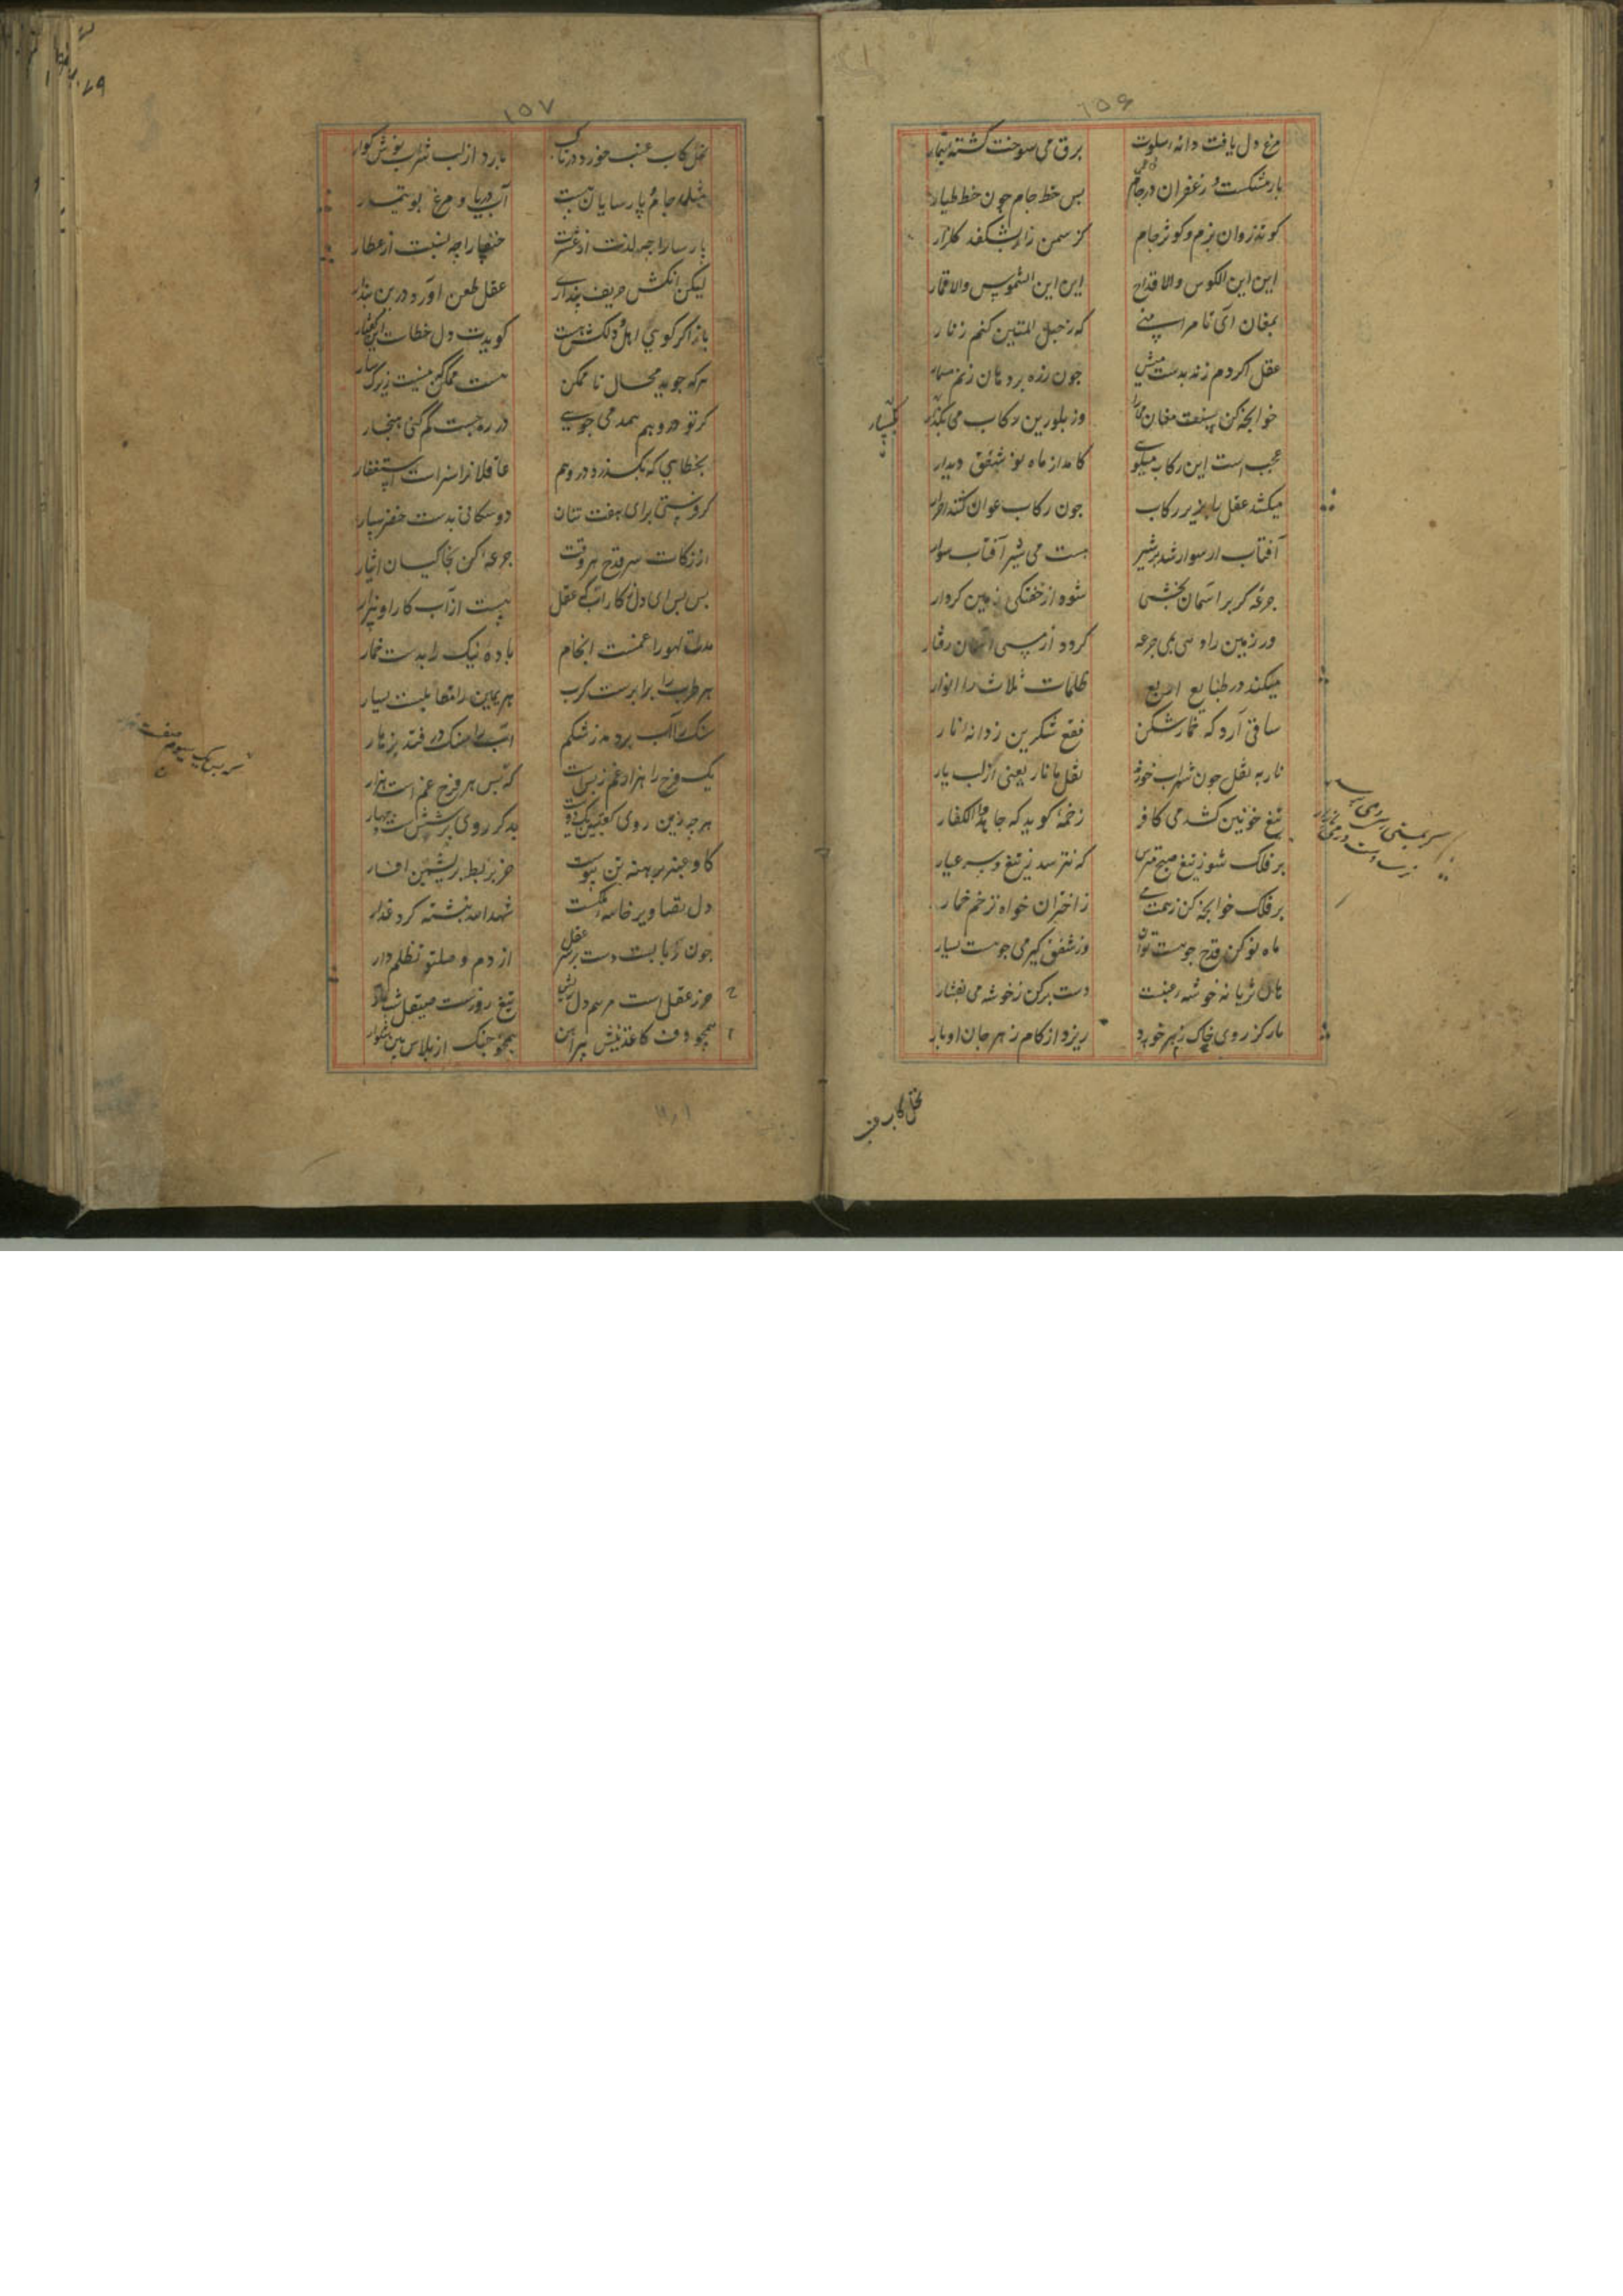 ۱۵۶
مرغ دل یافت دانهٔ سلوت برق می سوخت کشته تیمار
بار مشکست و زعفران در جام بس خط جام چون خط طیار
کوتذروان بزم و کوثر جام کز سمن زار بشکفد کلزار
این این الکوس والاقداح این این الشموس والاقمار
بمغان آی تا مرا بینی که ز حبل المتین کنم زنار
عقل اکر دم زند بدست میش چون رزه بر دهان زنم مسمار
خوابچه کن بسفت مغان می را وز بلورین رکاب می بگسار
عجب است این رکاب میکوی کامد از ماه نو شفق دیدار
میکشد عقل را بزیر رکاب چون رکاب عوان کشد احرار
آفتاب ار سوار شد بر شیر هست می شیر آفتاب سوار
جرعه کر بر اسمان بخشی شود از خفتکی زمین کردار
ور زمین را دهی می جرعه کردد از مستی آسمان رفتار
میکند در طبایع اربع ظلمات ثلاث را انوار
ساقی آرد که خمارشکن فقع شکرین ز دانه نار
نار به نقل چون شراب خوری نقل با نار یعنی از لب یار
تیغ خونین کشد می کافر زخمهٔ کوید که جاهد الکفار
بر فلک شو ز تیغ صبح مترس که نترسد ز تیغ و سر عیار
بر فلک خوابچه کن ز همت می ز اختران خواه نزخم خمار
ماه نو کن قدح چو هست توان وز شفق کیر می چو هست یسار
تاک ثریا نه خوشه عنبست دست برکن ز خوشه می بفشار
مار کز روی خاک زهر خورد ریزد از کام زهر جان اوبار
بگسار
نحل کاب
۱۵۷
نحل کاب عنب خورد در تاک بارد از لب شراب نوش کوار
جام پارسایان نیست آب دریا و مرغ بوتیمار
پارسا را چه لذت از عشرت خنفسا را چه نسبت از عطار
لیکن آنکش حریف پنداری عقل طعن آورد درین پندار
باز اکر کویی اهل و دلکش هست کویدت دل خطاست این کفتار
هر که جوید محال ناممکن هست ممکن که نیست زیرک سار
کر تو در وهم همدمی جویی در ره جست کم کنی هنجار
بخطایی که بگذرد در وهم عاقلان را سزاست استغفار
کر فرستی برای هفت تنان دوستکانی بدست خضر سپار
از زکات سر قدح هر وقت جرعه کن بخاکیان ایثار
بس بس ای دل ز کار آب که عقل هست از آب کار او بیزار
مدت لهو را غمست انجام بادهٔ نیک را بدست خمار
هر طرب را برابرست کرب هر یمین را مقابلست یسار
سنک را آب بر دمد ز شکم آب را سنک در فتد بزهار
یک فرح را هزار غم ز پس است که پس هر فرح غم است هزار
هر چه زین روی کعبتین یک و دوست بر دکر روی شش پنج است و چهار
کاو عنبر برهنه تن پیوست خر بربط بریشمین افسار
دل تصاویر خانهٔ نکست شهد الله نبشته کرد عذار
چون ربابست دست بر سر عقل از دم وصلت تظلم دار
حرز عقل است مرهم دل ریش تیغ روزست صیقل شب تار
همچو دف کاغذینش پیراهن همچو چنک از پلاس بین شلوار